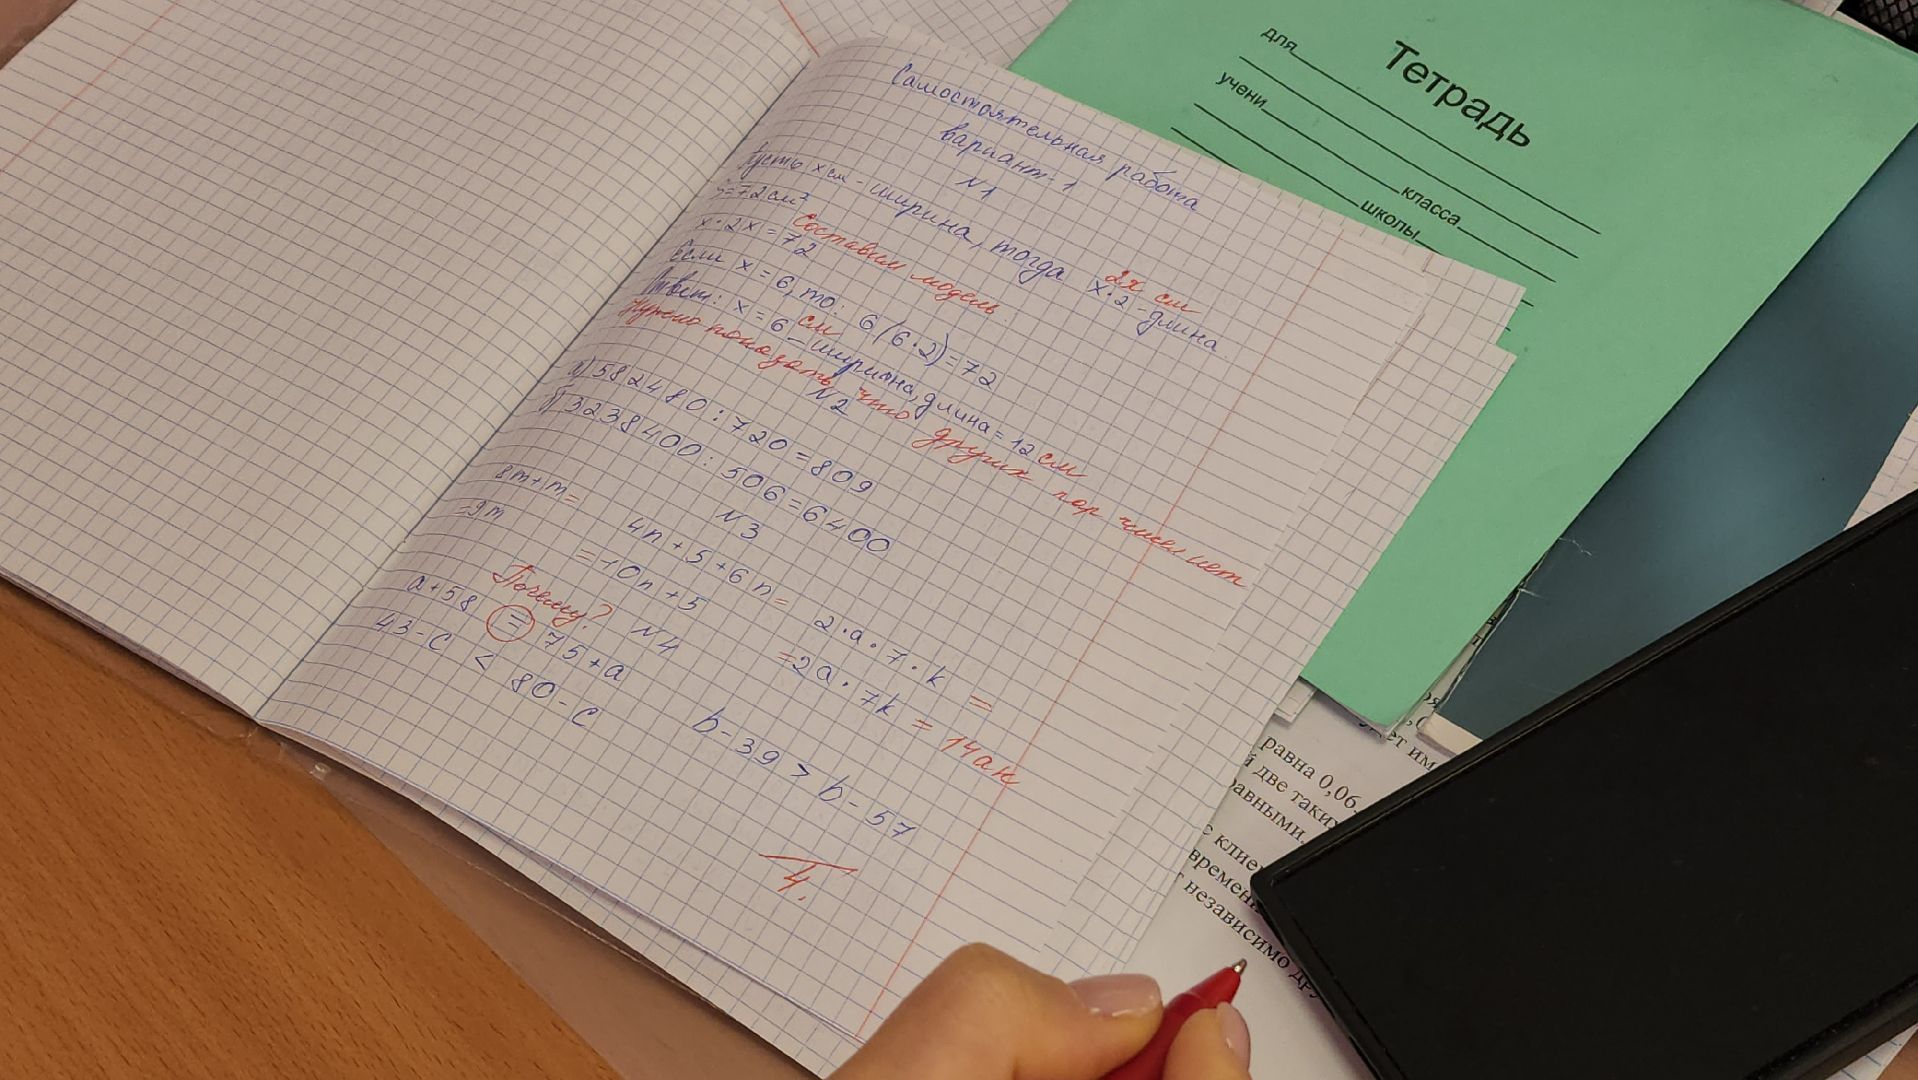 Самостоятельная работа
вариант-1
N1
Пусть x см - ширина, тогда x·2 - длина.
2x см
S=72см²
Составим модель:
x·2x=72
Если x=6, то: 6(6·2)=72
Ответ: x=6 см - ширина, длина=12 см
Нужно показать, что других пар чисел нет
N2
а) 582480:720=809
б) 3238400:506=6400
N3
8m+m=
=9m
4n+5+6n=
=10n+5
2·a·7·k =
=2a·7k = 14ak
Почему?
N4
a+58 = 75+a
43-c < 80-c
b-39 > b-57
4.
Тетрадь
для
учени
класса
школы
равна 0,06.
две таких
равными.
с клиен
времени
независимо дру